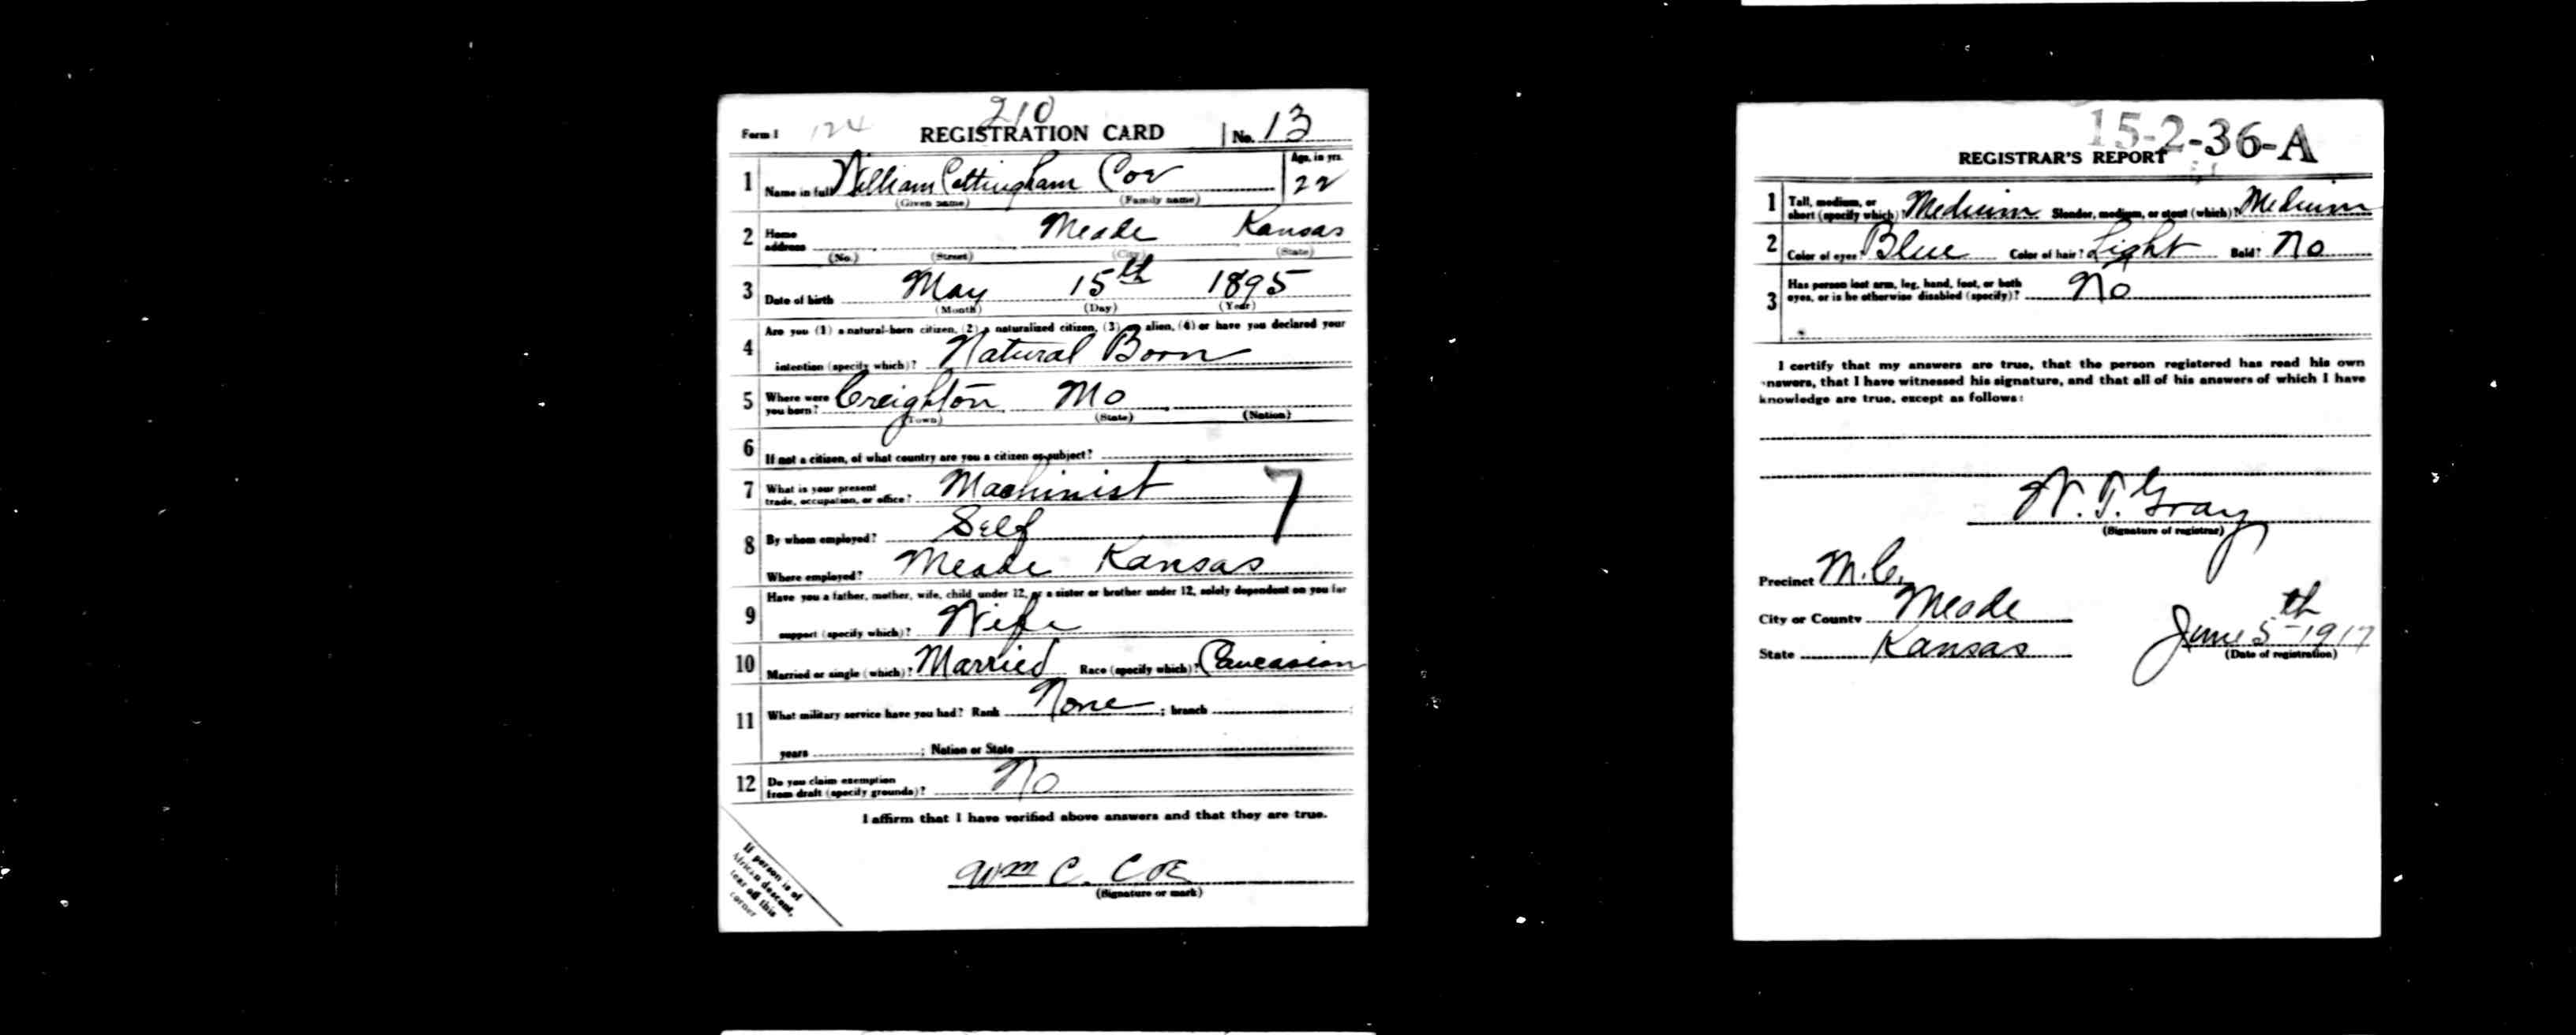 210
Form 1 124 REGISTRATION CARD No. 13
1 Name in full William Cottingham Coe Age, in yrs. 22
(Given name) (Family name)
2 Home address Meade Kansas
(No.) (Street) (City) (State)
3 Date of birth May 15th 1895
(Month) (Day) (Year)
4 Are you (1) a natural-born citizen, (2) a naturalized citizen, (3) an alien, (4) or have you declared your
intention (specify which)? Natural Born
5 Where were you born? Creighton Mo
(Town) (State) (Nation)
6 If not a citizen, of what country are you a citizen or subject?
7 What is your present trade, occupation, or office? Machinist 7
8 By whom employed? Self
Where employed? Meade Kansas
9 Have you a father, mother, wife, child under 12, or a sister or brother under 12, solely dependent on you for
support (specify which)? Wife
10 Married or single (which)? Married Race (specify which)? Caucasian
11 What military service have you had? Rank None ; branch ;
years ; Nation or State
12 Do you claim exemption from draft (specify grounds)? No
I affirm that I have verified above answers and that they are true.
Wm C. Coe
(Signature or mark)
If person is of
African descent,
tear off this
corner
15-2-36-A
REGISTRAR'S REPORT
1 Tall, medium, or short (specify which)? Medium Slender, medium, or stout (which)? Medium
2 Color of eyes? Blue Color of hair? Light Bald? No
3 Has person lost arm, leg, hand, foot, or both
eyes, or is he otherwise disabled (specify)? No
I certify that my answers are true, that the person registered has read his own
nswers, that I have witnessed his signature, and that all of his answers of which I have
knowledge are true, except as follows:
W. T. Gray
(Signature of registrar)
Precinct M.C.
City or County Meade
State Kansas June 5th-1917
(Date of registration)